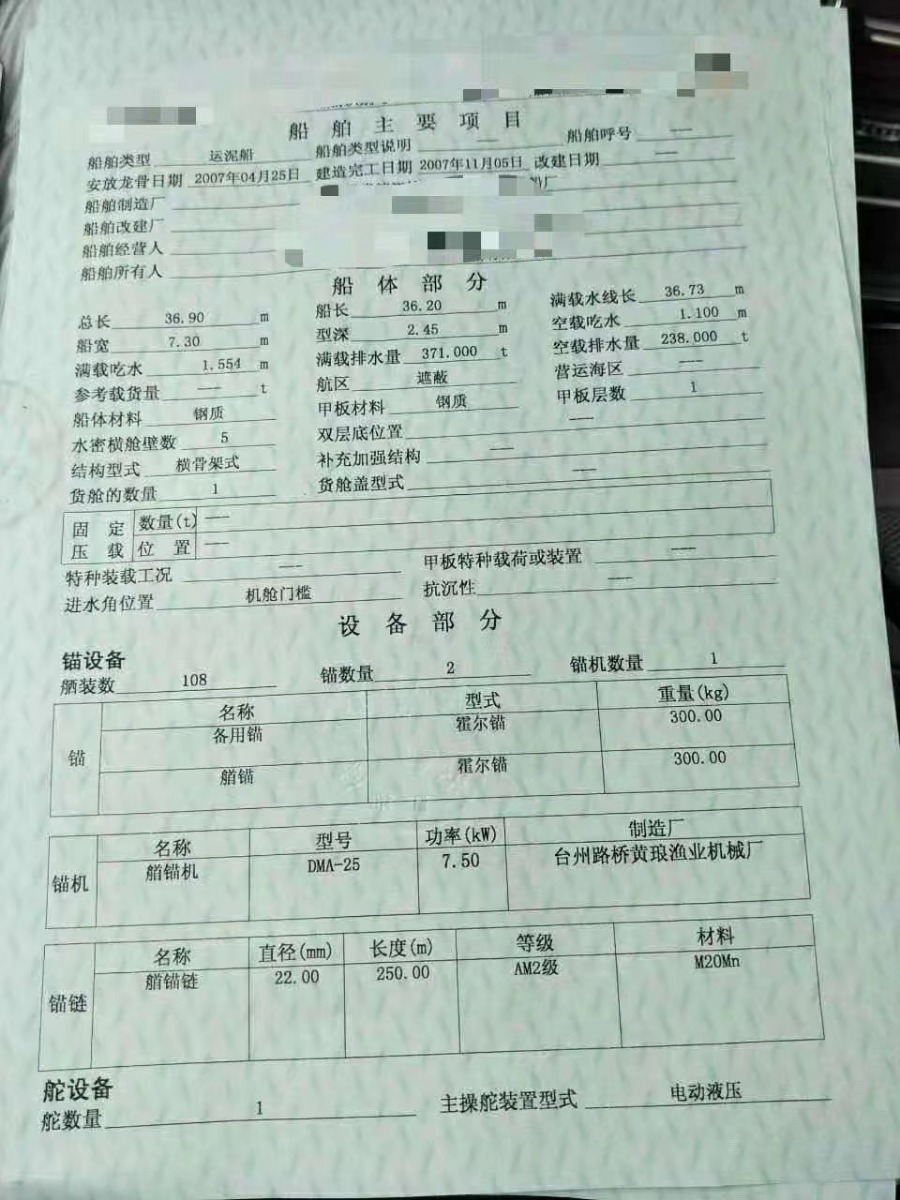 船舶主要项目
船舶类型 运泥船 船舶类型说明 --- 船舶呼号 ---
安放龙骨日期 2007年04月25日 建造完工日期 2007年11月05日 改建日期 ---
船舶制造厂 船厂
船舶改建厂
船舶经营人
船舶所有人
船体部分
总长 36.90 m 船长 36.20 m 满载水线长 36.73 m
船宽 7.30 m 型深 2.45 m 空载吃水 1.100 m
满载吃水 1.554 m 满载排水量 371.000 t 空载排水量 238.000 t
参考载货量 --- t 航区 遮蔽 营运海区 ---
船体材料 钢质 甲板材料 钢质 甲板层数 1
水密横舱壁数 5 双层底位置 ---
结构型式 横骨架式 补充加强结构 ---
货舱的数量 1 货舱盖型式 ---
固定压载 数量(t) ---
位置 ---
特种装载工况 --- 甲板特种载荷或装置 ---
进水角位置 机舱门槛 抗沉性 ---
设备部分
锚设备
舾装数 108 锚数量 2 锚机数量 1
锚 名称 型式 重量(kg)
备用锚 霍尔锚 300.00
艏锚 霍尔锚 300.00
锚机 名称 型号 功率(kW) 制造厂
艏锚机 DMA-25 7.50 台州路桥黄琅渔业机械厂
锚链 名称 直径(mm) 长度(m) 等级 材料
艏锚链 22.00 250.00 AM2级 M20Mn
舵设备
舵数量 1 主操舵装置型式 电动液压